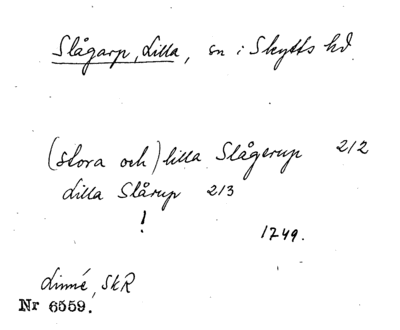 Slågarp, Lilla, sn i Skytts hd
(stora och) lilla Slågerup 212
Lilla Slårup 213
!
1749.
Linné, SkR
Nr 6559.